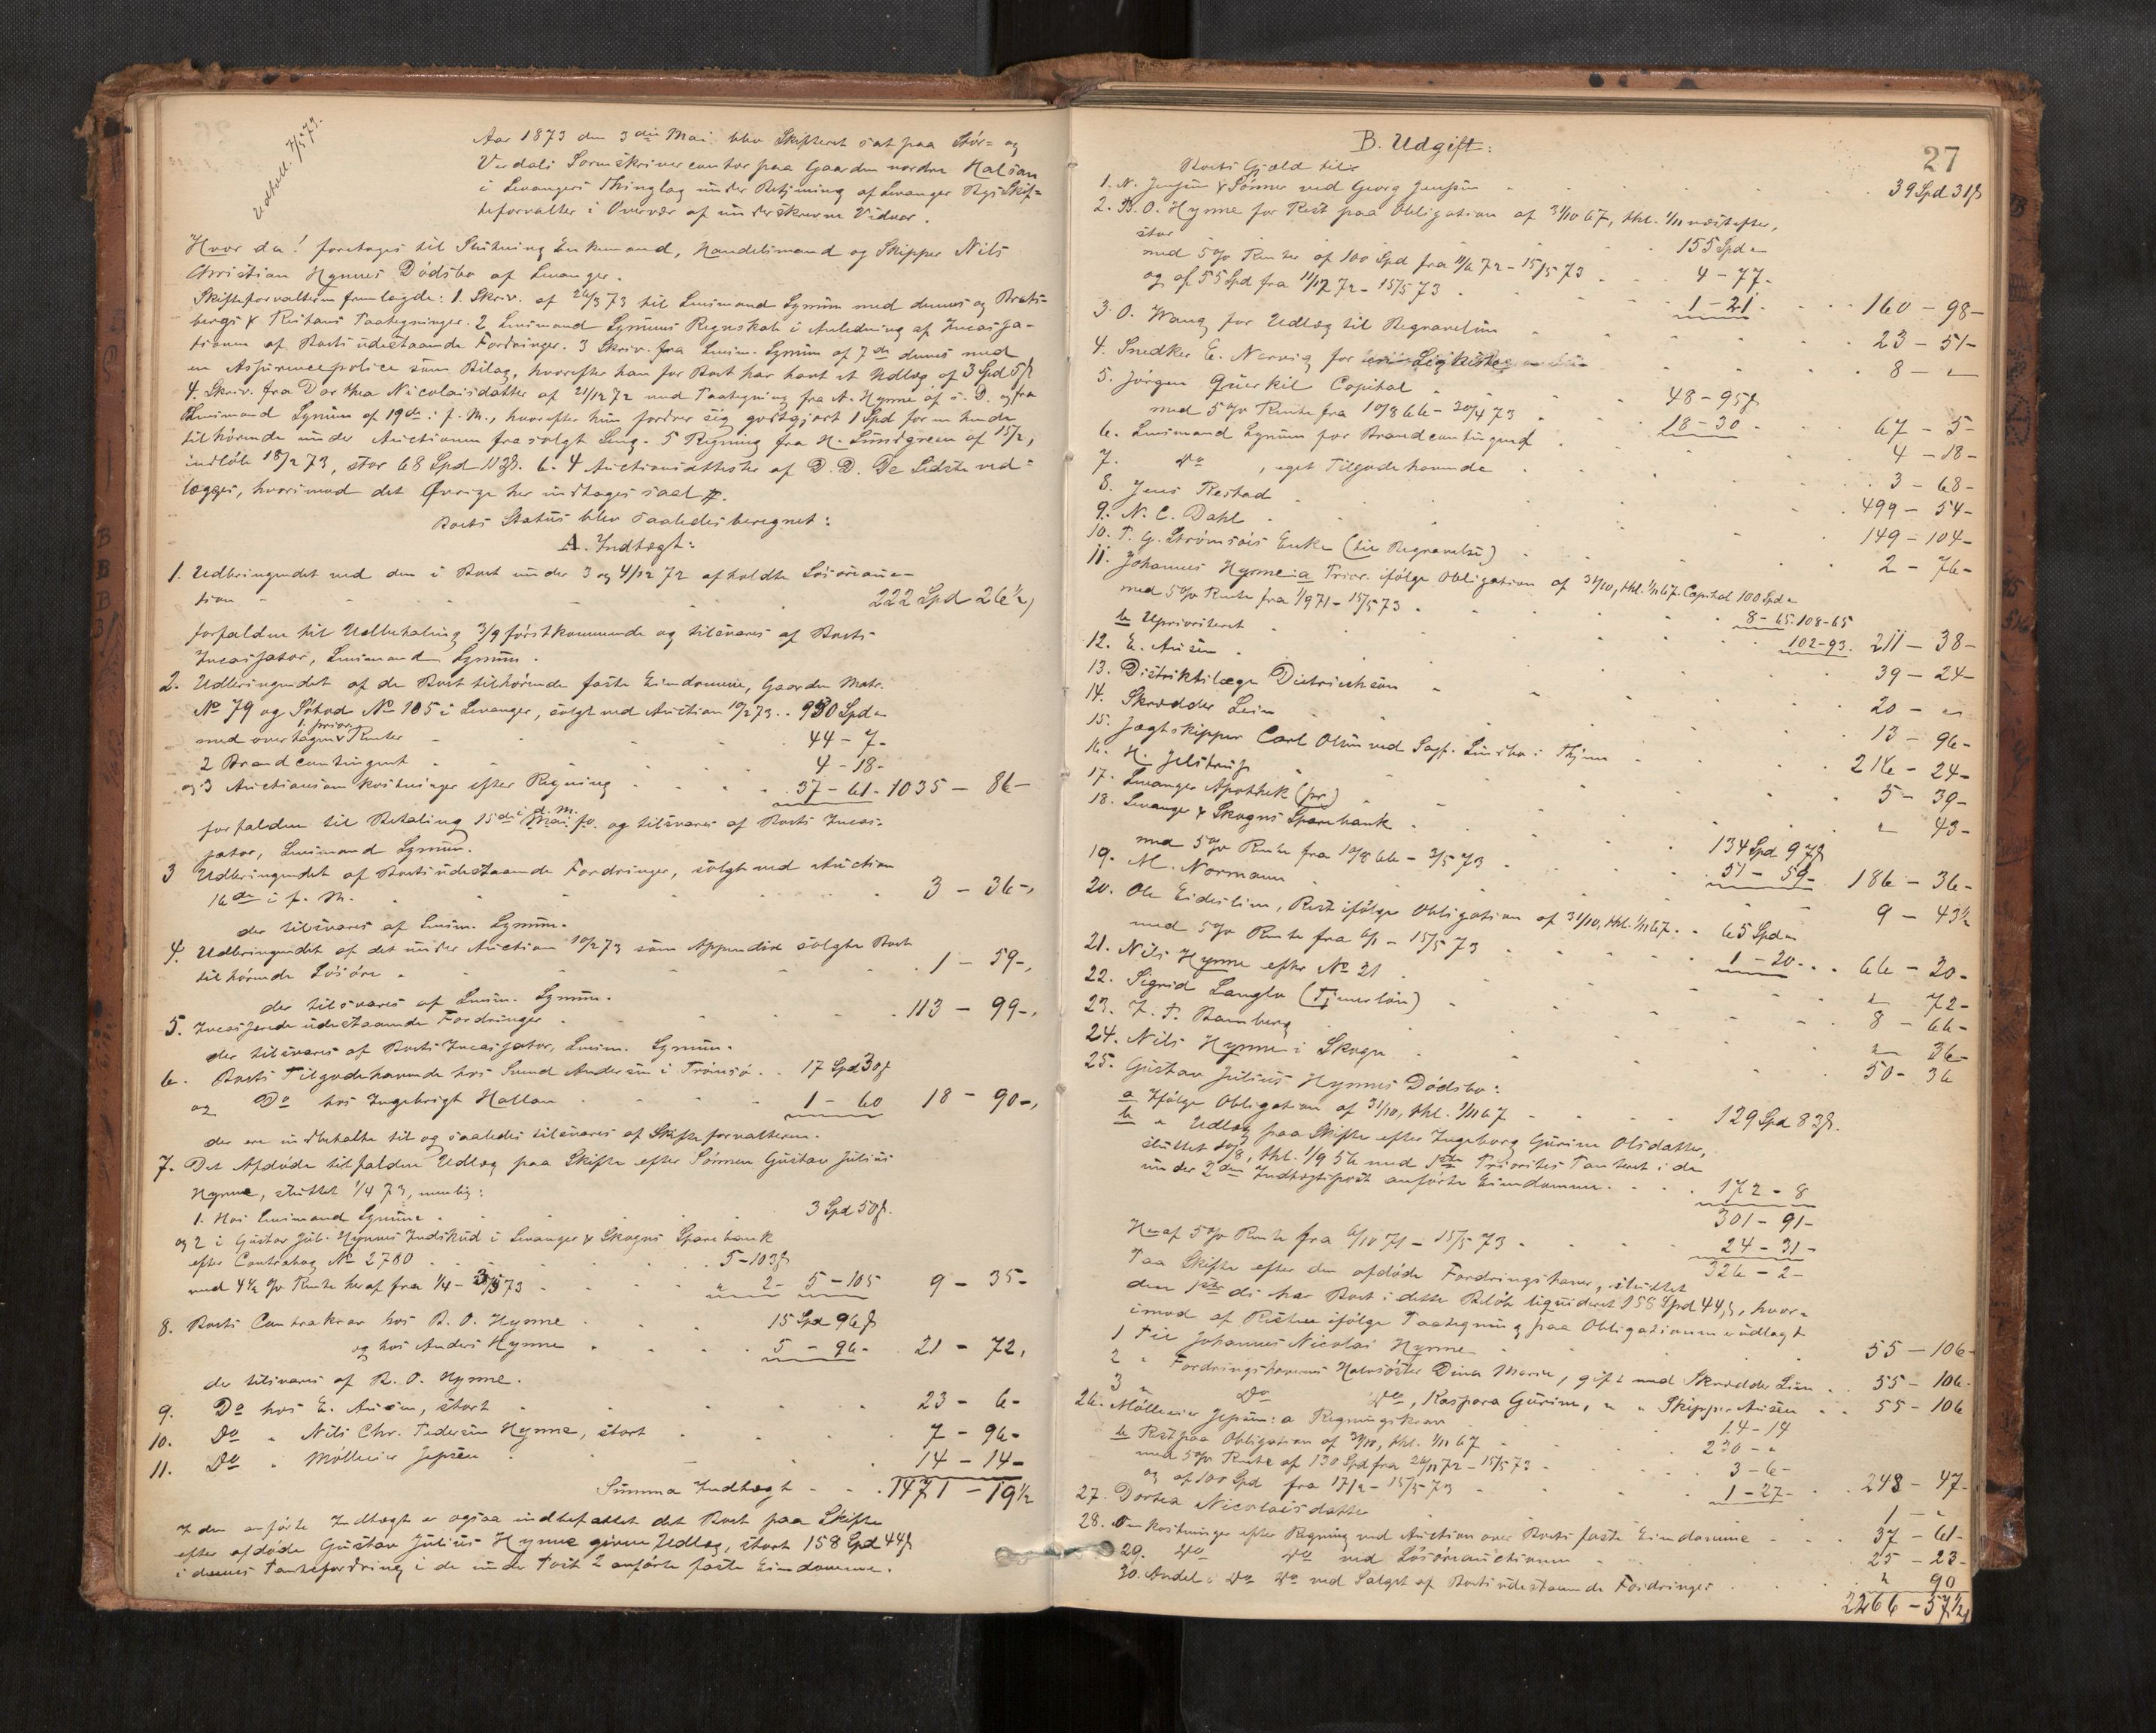 Udtall. 7/5 73.
Aar 1873 den 3die Mai blev Skifteret sat paa Stör- og
Verdals Sorenskrivercontor paa Gaarden nordre Halsan
i Levangers Thinglag under Betjening af Levanger Byes Skif-
teforvalter i Overvær af underskrevne Vidner.
Hvor da! foretoges til Slutning Enkemand, Handelsmand og Skipper Nils
Christian Hynnes Dödsbo af Levanger.
Skifteforvalteren fremlagde: 1. Skriv. af 26/3 73 til Lensmand Lynum med dennes og Brats-
bergs & Paategninger. 2 Lensmand Lynums Regnskab i Anledning af Incassa-
tionen af Boets udestaaende Fordringer. 3 Skriv. fra Lensm. Lynum af 7de dennes med
en Assurancepolice som Bilag, hvorefter han for Boet har havt et Udlæg af 3 Spd 5 ß
4. Skriv. fra Dorthea Nicolaisdatter af 21/12 72 med Paategning fra N. Hynne af s. D. og fra
Lensmand Lynum af 19de i f. M., hvorefter hun fordrer sig godtgjort 1 Spd for en hende
tilhörende under Auctionen frasolgt Seng. 5 Regning fra H. Lundgreen af 15/2,
indløb 18/2 73, stor 68 Spd 113ß. 6. 4 Auctionsattester af D. D. De Sidste ved-
lægges, hvorimod det Øvrige her indtages saal #.
Boets Status blev saaledes beregnet:
A. Indtægt:
1. Udbringendet ved den i Boet under 3 og 4/12 72 afholdte Lösöreauc-
tion - 222 Spd 26½,
forfalden til Udbetaling 3/9 förstkommende og tilsvares af Boets
Incassator, Lensmand Lynum.
2. Udbringendet af de Boet tilhörende faste Eiendomme, Gaarden Matr.
No 79 og Söbod No 105 i Levanger, solgt ved Auction 10/2 73 .. 950 Spd "
med overtagne 1. prior. Renter - 44 - 7-
2 Brandcontingent - 4 - 18-
og 3 Auctionsomkostninger efter Regning - 37 - 61- 1035 - 86-
forfalden til Betaling 15de i d. M. Mai fo. og tilsvares af Boets Incas-
sator, Lensmand Lynum.
3 Udbringendet af Boets udestaaende Fordringer, solgt ved Auction
16de i f. M. 3 - 36-,
der tilsvares af Lensm. Lynum.
4. Udbringendet af det under Auction 10/2 73 som Appendix solgte Boet
tilhörende Lösöre - 1 - 59-,
der tilsvares af Lensm. Lynum.
5. Incasserede udestaaende Fordringer - 113 - 99-,
der tilsvares af Boets Incassator, Lensm. Lynum.
6. Boets Tilgodehavende hos Svend Andersen i Tromsö .. 17 Spd 30ß
og Do hos Ingebrigt Hallan 1 - 60 18 - 90-,
der ere indbetalte til og saaledes tilsvares af Skifteforvalteren.
7. Det Afdöde tilfaldne Udlæg paa Skifte efter Sönnen Gustav Julius
Hynne, sluttet 1/4 73, nemlig:
1. Hos Lensmand Lynum - 3 Spd 50ß.
og 2 i Gustav Jul. Hynnes Indskud i Levanger & Skogns Sparebank
efter Contrabog No 2780 5-103ß
med 4½ % Rente heraf fra 1/4 - 3/5 73 " 2- 5-105 9 - 35-
8. Boets Contrakrav hos B. O. Hynne 15 Spd 96ß
og hos Anders Hynne 5 - 96- 21 - 72,
der tilsvares af B. O. Hynne.
9. Do hos E. Ausen, stort 23 - 6-
10. Do " Nils Chr. Pedersen Hynne, stort 7 - 96-
11. Do " Möllerier Jepsen 14 - 14-
Summa Indtægt - - 1471 - 19½
I den anförte Indtægt er ogsaa indbefattet det Boet paa Skifte
efter afdöde Gustav Julius Hynne givne Udlæg, stort 158 Spd 44ß
i dennes Pantefordring i de under Post 2 anförte faste Eiendomme.
27
B. Udgift:
Boets Gjæld til
1. N. Jenssen & Sönner ved Georg Jenssen - 39 Spd 31ß
2. B. O. Hynne for Rest paa Obligation af 31/10 67, thl. 1/11 næstefter,
stor 155 Spd "
med 5% Renter af 100 Spd fra 11/6 72 - 15/5 73 4 - 77-
og af 55 Spd fra 11/12 72 - 15/5 73 1 - 21 160 - 98-
3. O. Wang for Udlæg til Begravelsen 23 - 51-
4. Snedker E. Nervig for Ligkiste 8 - "
5. Jörgen Querkil Capital 48 - 95ß
med 5% Rente fra 10/8 66 - 30/4 73 18 - 30 67 - 5-
6. Lensmand Lynum for Brandcontingent 4 - 18-
7. Do, eget Tilgodehavende 3 - 68-
8. Jens Restad 499 - 54-
9. N. C. Dahl 149 - 104-
10. P. G. Strömsöes Enke (til Begravelse) 2 - 76-
11. Johannes Hynne: a Prior. ifölge Obligation af 31/10, thl. 1/11 67. Capital 100 Spd "
med 5% Rente fra 1/9 71 - 15/5 73 8 - 65. 108-65
b Uprioriteret 102-93. 211 - 38-
12. E. Ausen 39 - 24-
13. Distriktslæge Dietrichson 20 - "
14. Skrædder Lein 13 - 96-
15. Jægtskipper Carl Olsen ved Sagf. Lundbo i Thjem 216 - 24-
16. H. Jelstrup 5 - 39-
17. Levanger Apothek (pr.) " 43-
18. Levanger & Skogns Sparebank 134 Spd 97ß
med 5% Rente fra 10/8 66 - 3/5 73 51 - 59- 186 - 36-
19. M. Normann 9 - 43½
20. Ole Eideslien, Rest ifölge Obligation af 31/10, thl. 1/11 67 .. 65 Spd "
med 5% Rente fra 6/1 - 15/5 73 1 - 20 .. 66 - 20-
21. Nils Hynne efter No 21 " 72-
22. Sigrid Langlo (Tjenerlön) 8 - 66-
23. F. P. Bamberg " 36-
24. Nils Hynne i Skogn 50 - 36
25. Gustav Julius Hynnes Dödsbo:
a Ifölge Obligation af 31/10, thl. 1/11 67 129 Spd 83ß.
b " Udlæg paa Skifte efter Ingeborg Gurine Olsdatter,
sluttet 30/8, thl. 1/9 56 med 1ste Prioritets Panteret i de
under 2den Indtægtspost anförte Eiendomme 172 - 8
301 - 91-
Heraf 5% Rente fra 6/10 71 - 15/5 73 24 - 31-
326 - 2-
Paa Skifte efter den afdöde Fordringshaver, sluttet
den 1ste ds har Boet i dette Belöb liquideret 158 Spd 44ß, hvor-
imod af Resten ifölge Paategning paa Obligationen er udlagt
1 Til Johannes Nicolai Hynne 55 - 106-
2 " Fordringshaverens Halvsöster Dina Marie, gift med Skrædder Lien 55 - 106-
3 " Do Do, Kaspara Gurine, " " Skipper Ausen 55 - 106
26. Möllerier Jepsen: a Regningskrav 14 - 14
b Rest paa Obligation af 31/10, thl. 1/11 67 230 - "
med 5% Rente af 130 Spd fra 26/11 72 - 15/5 73 3 - 6-
og af 100 Spd fra 17/2 - 15/5 73 1 - 27- 248 - 47-
27. Dortea Nicolaisdatter 1 - "
28. Omkostninger efter Regning ved Auction over Boets faste Eiendomme 37 - 61-
29. Do Do ved Lösöreauctionen 25 - 23-
30. Andel i Do Do ved Salget af Boets udestaaende Fordringer " 90
2266 - 57½